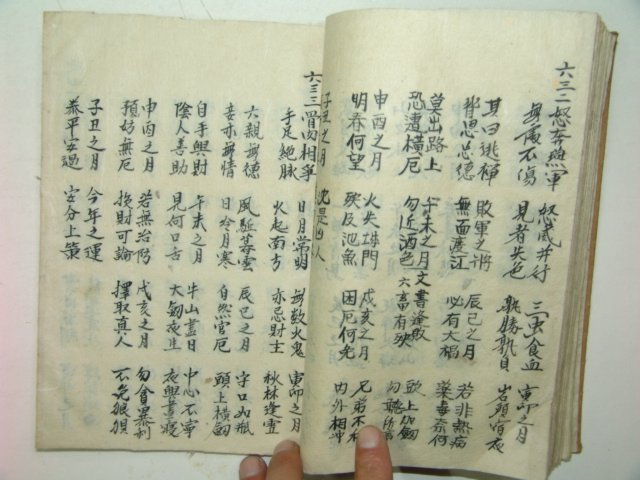 六三二 怒奔 怒威并行 三虫食血 寅卯之月
處不傷 見者失色 孰勝孰負 岩頭宿夜
其曰逃禪 敗軍之將 辰巳之月 若非熱病
背恩忘德 無面渡江 必有大禍 藥毒奈何
草出路上 午未之月 文書逢敗 頭上加劍
恐遭橫厄 勿近酒色 六畜有殃 勿聽所
申酉之月 火失城門 戌亥之月 兄弟不和
明春何望 殃及池魚 困厄何免 内外相冲
子丑之月 況是凶人
六三三 骨肉相爭 日月常明 無數火鬼 寅卯之月
手足絶脉 火起南方 亦忌財主 秋林逢雪
六親無德 風驅暮雲 辰巳之月 守口如瓶
妾亦無情 日冷月寒 自然官厄 頭上橫劍
自手興財 午未之月 牛山盡日 中心不寧
陰人善助 見何口舌 大劍夜生 夜興晝寢
申酉之月 若無治防 戌亥之月 勿會異利
預妨無厄 損財可論 擇取真人 不免狼狽
子丑之月 今年之運
泰平安過 安分上策